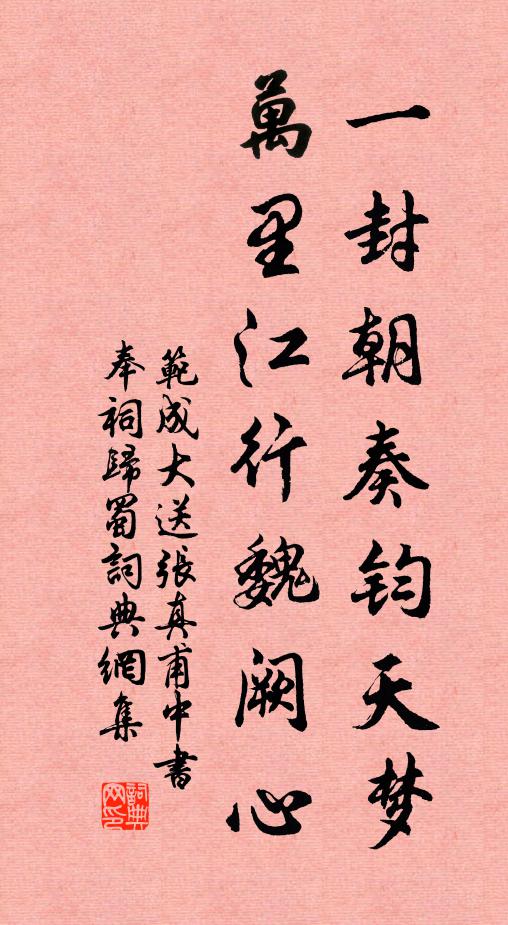 一封朝奏钧天梦
萬里江行魏阙心
範成大送張真甫中書
奉祠歸蜀詞典網集
詞典网印